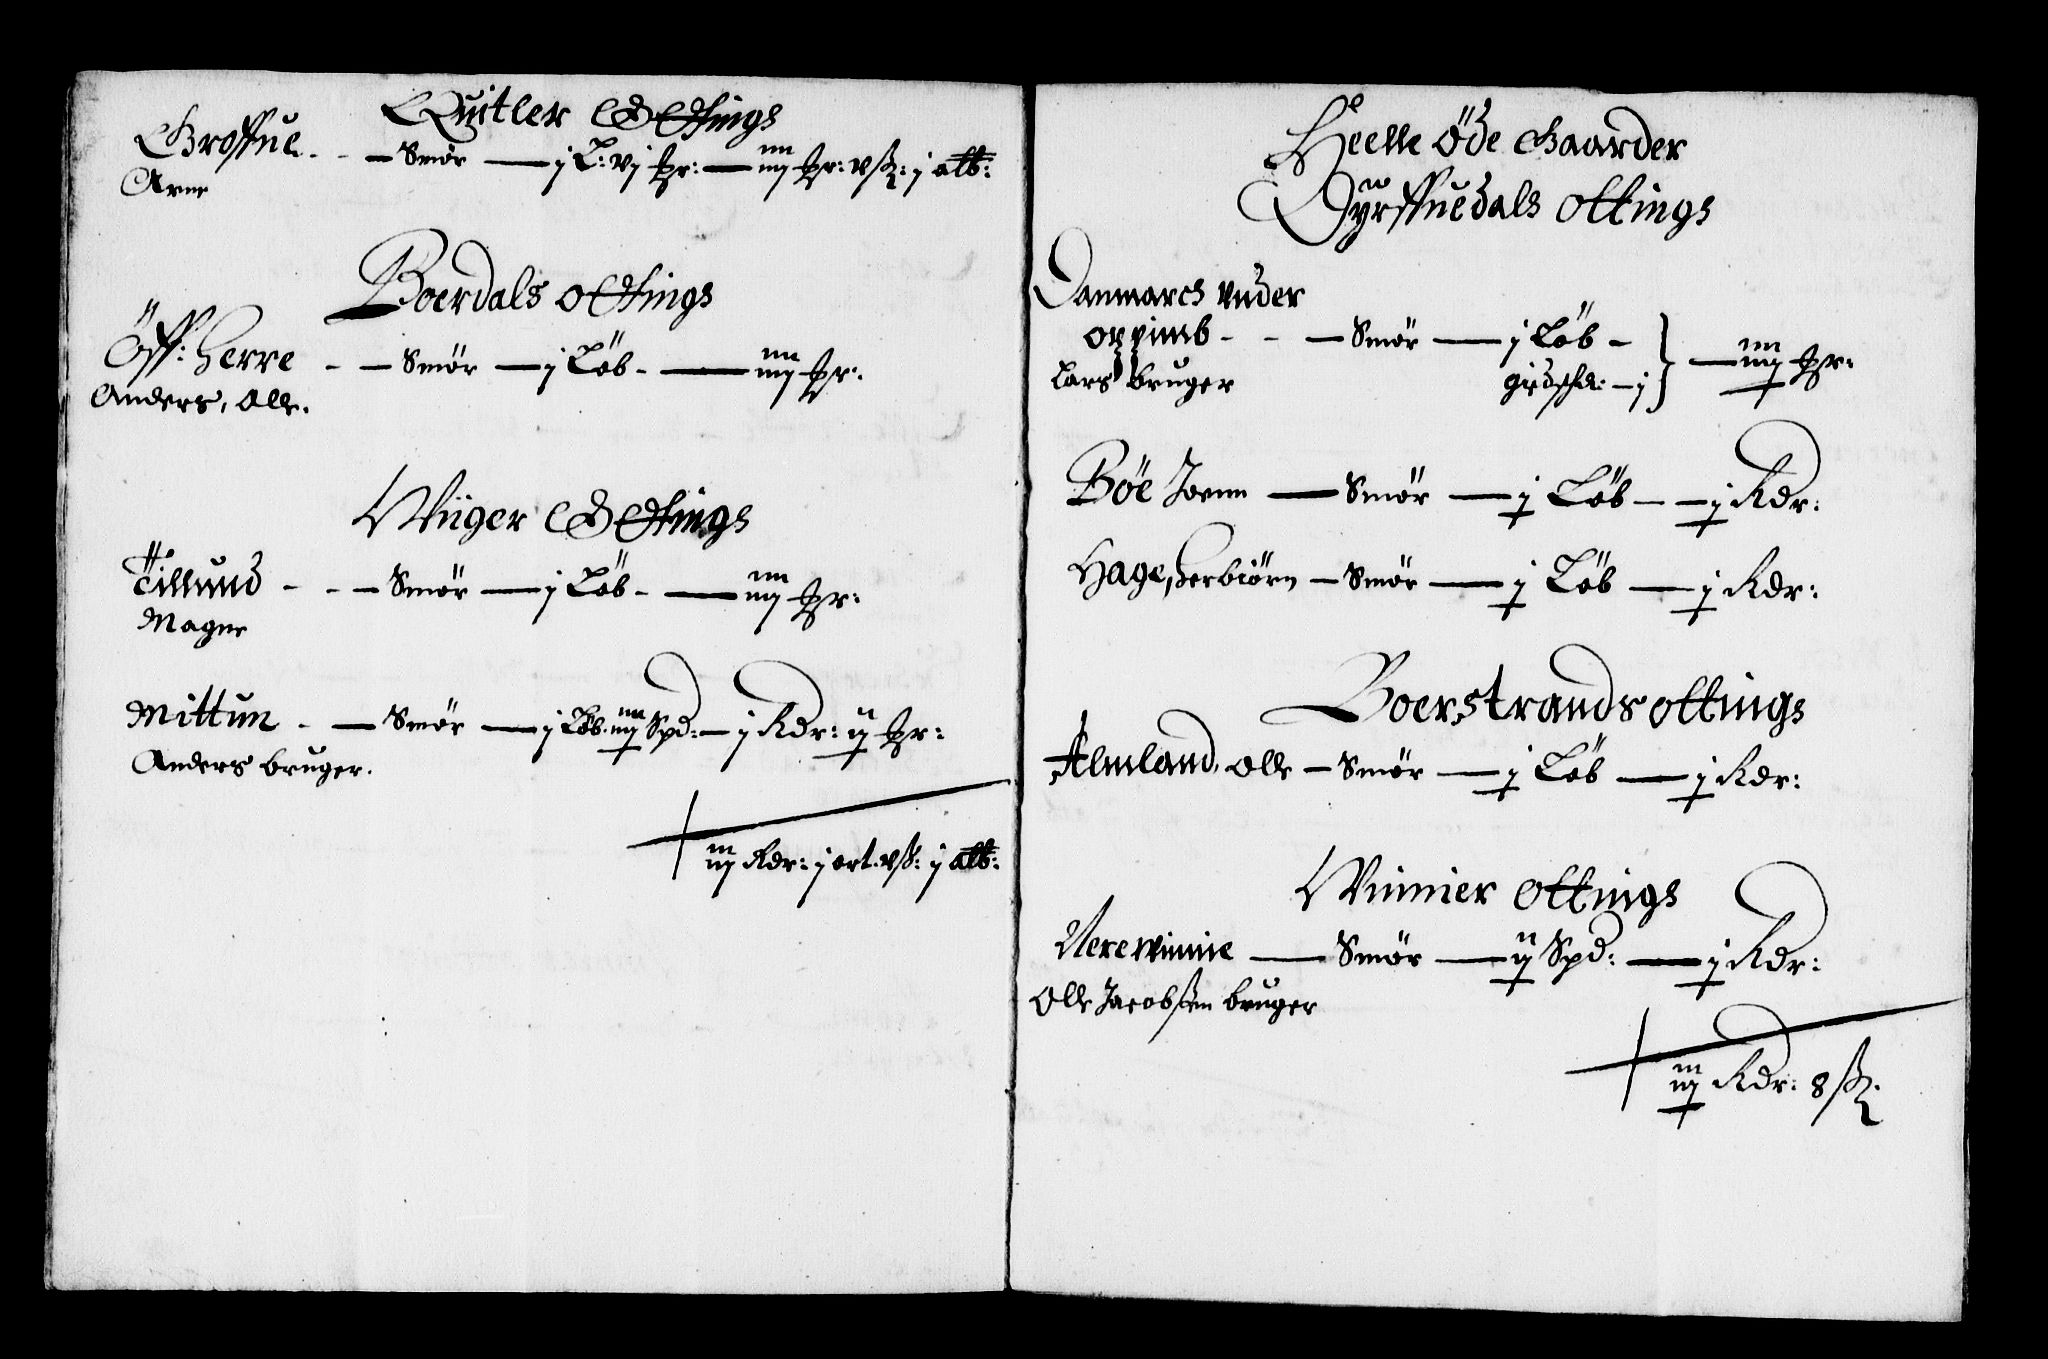 Quitler Ottings
Groffue - - Smør — j L: vj ħr: — iiij ħr: v ß: j alb:
Arne
Boerdals ottings
Öff: Herre - - Smør — j Löb - — iiij ħr:
Anders, Olle.
Wiiger Ottings
Tillund - - - Smør — j Löb - — iiij ħr:
Magne
Mittun - — Smør — j Löb. iiij Spd: — j Rdr: ij ħr:
Anders bruger.
iiij Rdr: j ort. v ß: j alb:
Heelle öde Gaarder
Dyrffuedals ottings
Danmarch vnder
oppimb - - — Smör — j Löb -
Lars bruger
giedschd: — j — iiij ħr:
Böe Joenn — Smör — j Löb — — j Rdr:
Hage, herbiörn — Smör — j Löb — j Rdr:
Boerstrands ottings
Almland, Olle — Smör — j Löb — j Rdr:
Winnier ottings
Nerewinnie — Smör — ij Spd: — j Rdr:
Olle Jacobßen bruger
iiij Rdr: 8 ß